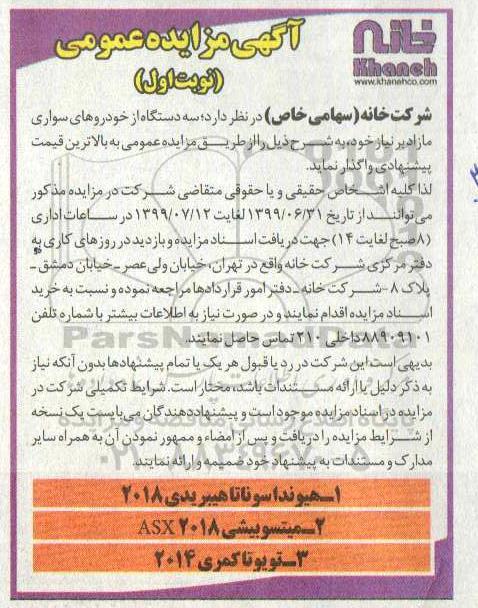 خانه
Khaneh
www.khanehco.com
آگهی مزایده عمومی
(نوبت اول)
شرکت خانه (سهامی خاص) در نظر دارد؛ سه دستگاه از خودروهای سواری
مازاد بر نیاز خود، به شرح ذیل را از طریق مزایده عمومی به بالاترین قیمت
پیشنهادی واگذار نماید.
لذا کلیه اشخاص حقیقی و یا حقوقی متقاضی شرکت در مزایده مذکور
می توانند از تاریخ ۱۳۹۹/۰۶/۳۱ لغایت ۱۳۹۹/۰۷/۱۲ در ساعات اداری
(۸ صبح لغایت ۱۴) جهت دریافت اسناد مزایده و بازدید در روزهای کاری به
دفتر مرکزی شرکت خانه واقع در تهران، خیابان ولی عصر ـ خیابان دمشق ـ
پلاک ۸ – شرکت خانه ـ دفتر امور قراردادها مراجعه نموده و نسبت به خرید
اسناد مزایده اقدام نمایند و در صورت نیاز به اطلاعات بیشتر با شماره تلفن
۸۸۹۰۹۱۰۱ داخلی ۲۱۰ تماس حاصل نمایند.
بدیهی است این شرکت در رد یا قبول هر یک یا تمام پیشنهادها بدون آنکه نیاز
به ذکر دلیل یا ارائه مستندات باشد، مختار است. شرایط تکمیلی شرکت در
مزایده در اسناد مزایده موجود است و پیشنهاددهندگان می بایست یک نسخه
از شرایط مزایده را دریافت و پس از امضاء و ممهور نمودن آن به همراه سایر
مدارک و مستندات به پیشنهاد خود ضمیمه و ارائه نمایند.
۱ـ هیوندا سوناتا هیبریدی ۲۰۱۸
۲ـ میتسوبیشی ASX ۲۰۱۸
۳ـ تویوتا کمری ۲۰۱۴